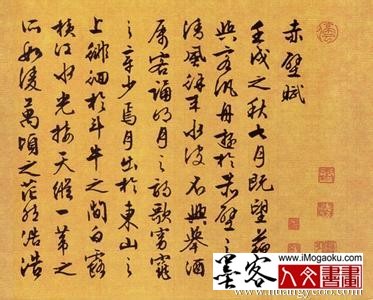 赤壁賦
壬戌之秋七月既望蘇
與客汎舟遊於赤壁之
清風徐來水波不興舉酒
屬客誦明月之詩歌窈窕
之章少焉月出於東山之
上徘徊於斗牛之間白露
橫江水光接天縱一葦之
所如凌萬頃之茫然浩浩
www.iMogaoku.com
墨客
人文書畫